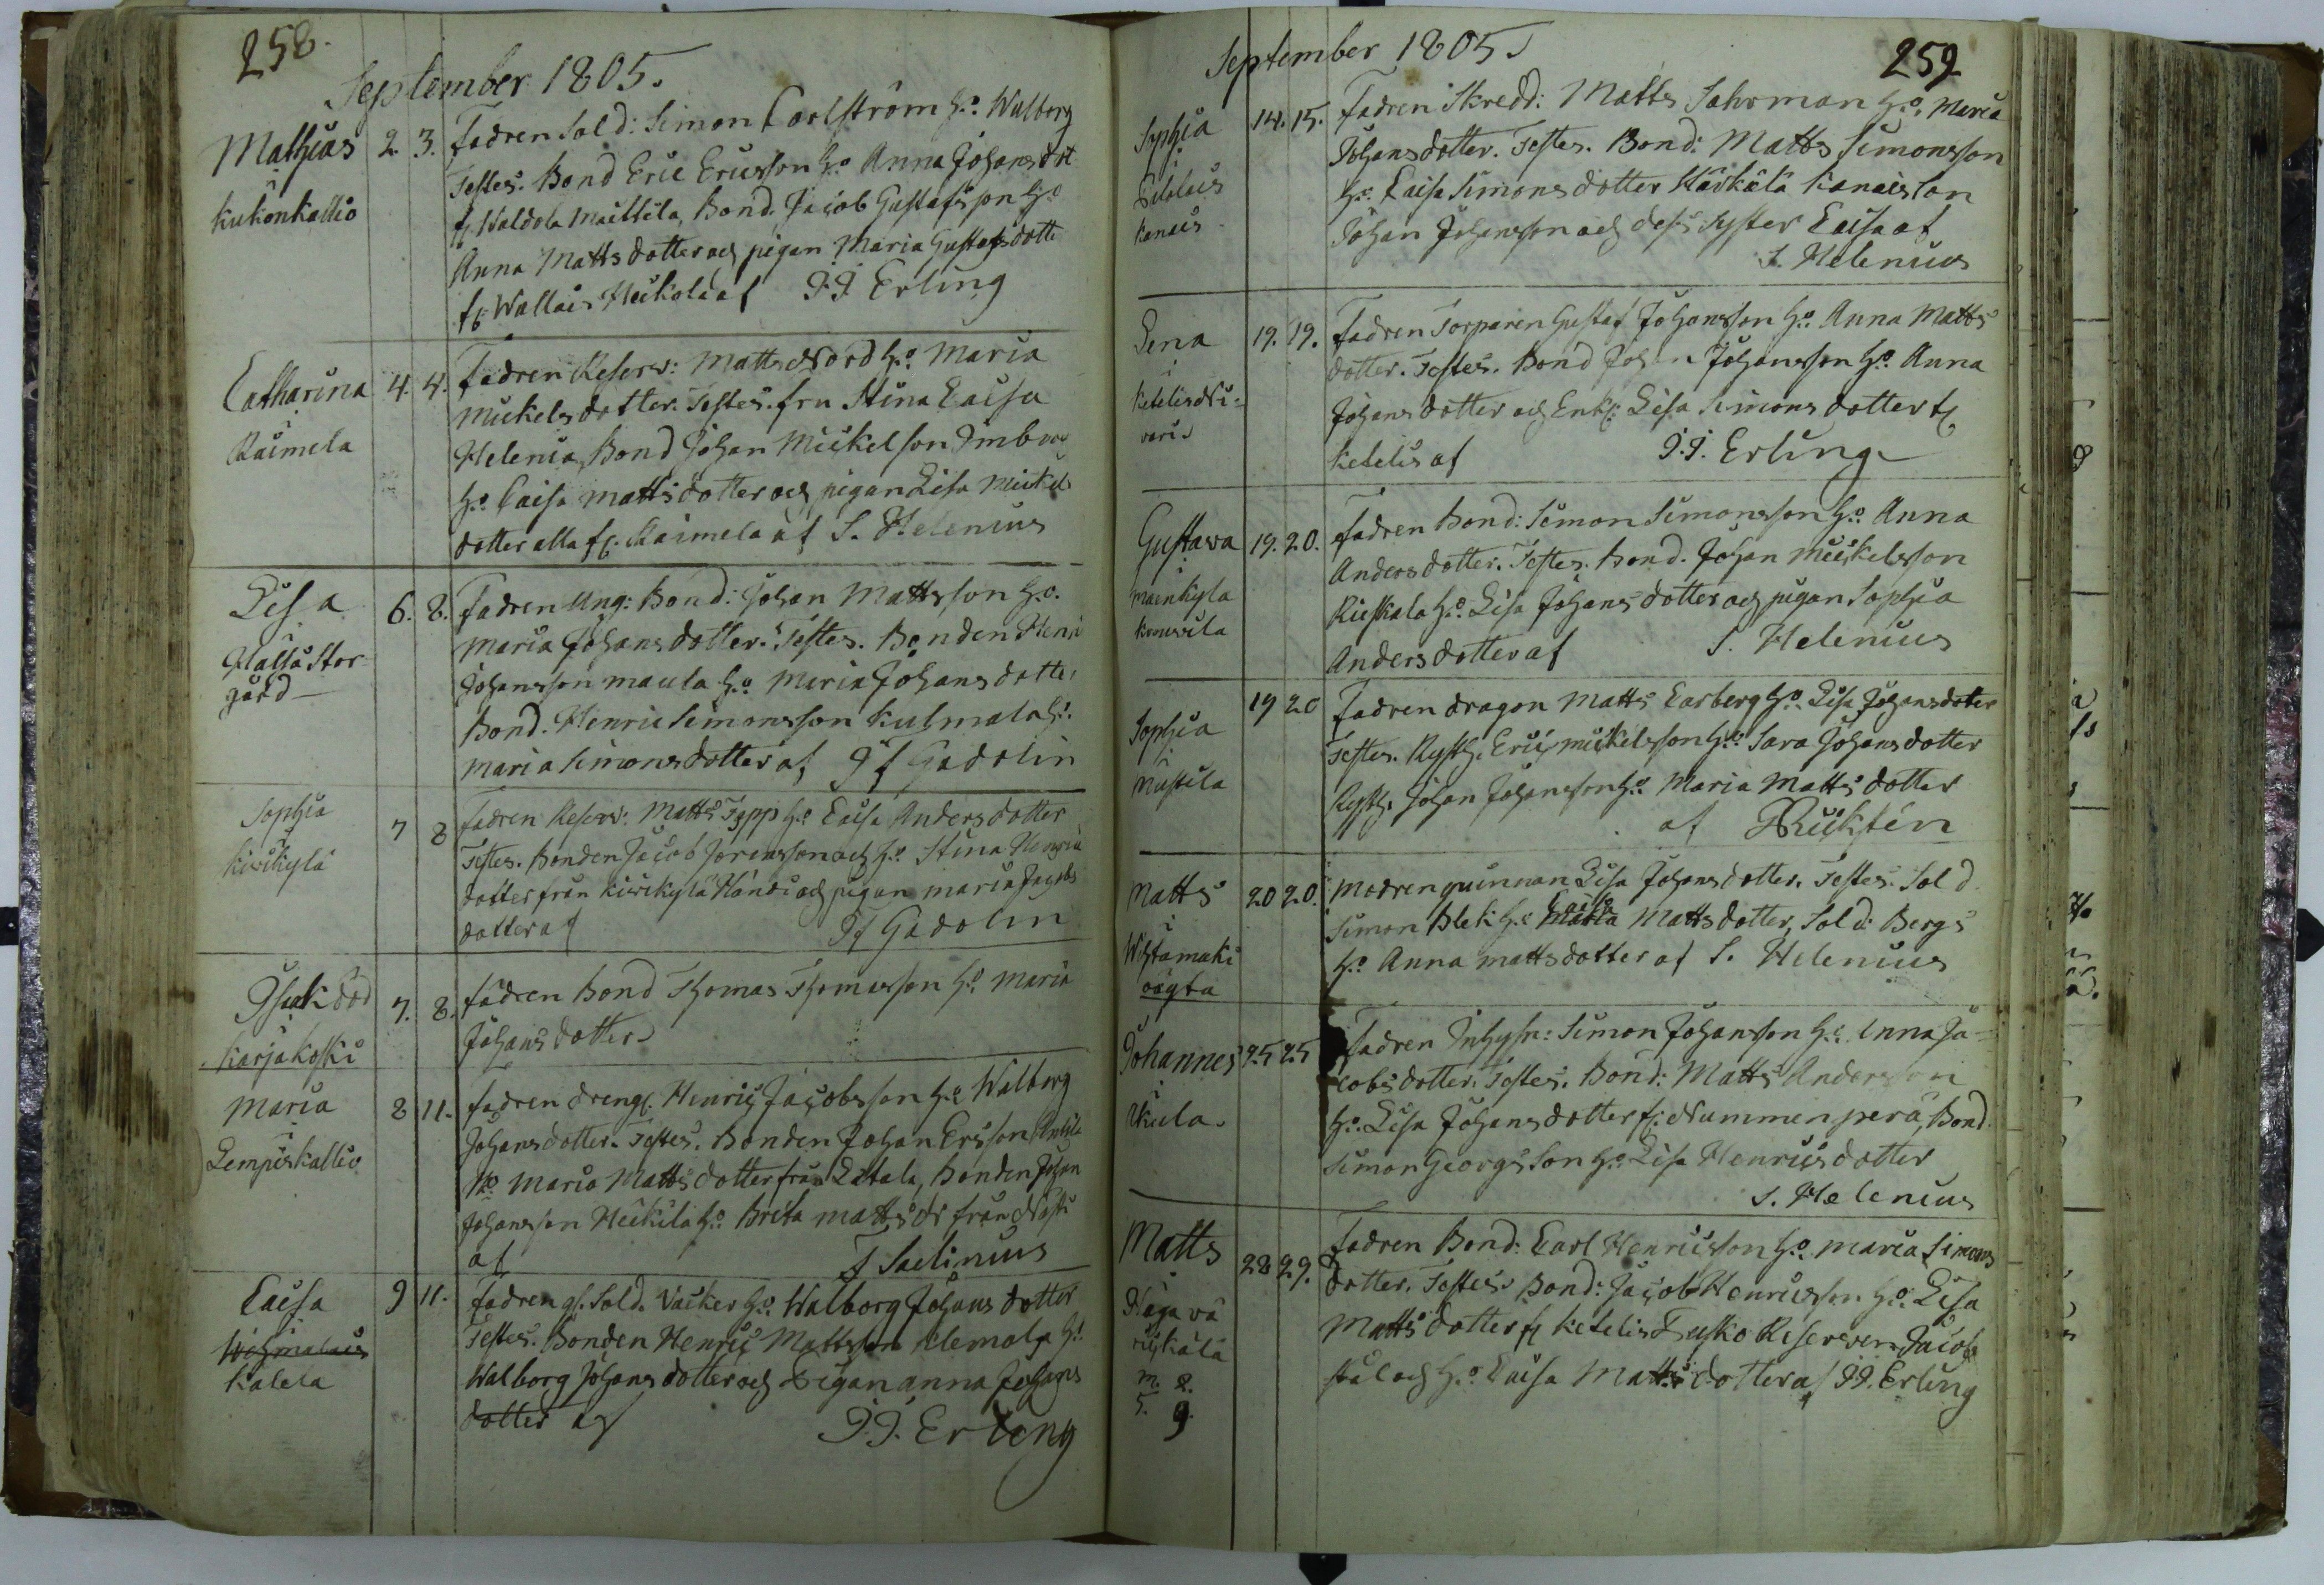 258.
September 1805.
Mathias
i
kukonkallio
2. 3.
Fadren Sold: Simon Carlström h:o Walborg
Testes. Bond Eric Ericsson h:o Anna Johansdot
fr Waldola Maittila, Bond. Jacob Gustafsson h:o
Anna Mattsdotter och pigan Maria Gustafsdotte
fr Wallais Heikola af J.J. Erling
Catharina
i
Raimela
4. 4.
Fadren Reserv: Matts Nord h:o Maria
Mickelsdotter. Testes. fru Stina Caisa
Helenia, Bond Johan Mickelson
h:o Caisa Mattsdotter och pigan Lisa Mickels
dotter alla fr. Raimela af S. Helenius
Lisa
i
Halla Stor-
gård
6. 8.
Fadren Ung: Bond: Johan Mattsson h:o
Maria Johansdotter. Testes. Bonden Henri
Johansson Maula h:o Maria Johansdotter
Bond. Henric Simonsson Kulmala h:o
Maria Simonsdotter af J f Gadolin
Sophia
i
Kivikylä
7 8
Fadren Reserv: Matts Tapp h:o Caisa Andersdotter
Testes. Bonden Jacob Jöransson och h:o Stina Henrics
dotter från Kivikylä och pigan Maria Jacobs
dotter af J f Gadolin
Isak död
i
Karjakoski
7. 8.
fadren Bond Thomas Thomasson h:o Maria
Johansdotter
Maria
i
Lempiskallio
8 11.
fadren dreng: Henric Jacobsson h:o Walborg
Johansdotter. Testes. Bonden Johan Ersson
h:o Maria Mattsdotter från Latala, Bonden Johan
Johansson Heikilä h:o Brita Mattsdr från
af F Saelinius
Caisa
Kalela
9 11.
Fadren gl. Sold. Vacker h:o Walborg Johansdotter
Testes. Bonden Henric Mattsson Klemola h:o
Walborg Johansdotter och Pigan Anna Johans
dotter af J.J. Erling
September 1805
259
Sophia
i
Kanais
14. 15.
Fadren Skredd: Matts Sahrman h:o Maria
Johansdotter. Testes. Bond: Matts Simonsson
h:o Caisa Simonsdotter Härkälä Kanais
Johan Johansson och dess syster Caisa af
S. Helenius
Lena
i
Ketelis Ni-
vari
19. 19.
Fadren Torparen Gustaf Johansson h:o Anna Matts
dotter. Testes. Bond Johan Johansson h:o Anna
Johansdotter och Enk: Lisa Simonsdotter fr
Ketelis af J.J. Erling
Gustava
i
Mäenkyla
Krouvila
19. 20.
Fadren Bond: Simon Simonsson h:o Anna
Andersdotter. Testes. Bond. Johan Mickelsson
Rieskala h:o Lisa Johansdotter och pigan Sophia
Andersdotter af S. Helenius
Sophia
i
Mustila
19 20
Fadren dragon Matts Carberg h:o Lisa Johansdoter
Testes. Rysth. Eric Mickelsson h:o Sara Johansdotter
Rysth. Johan Johansson h:o Maria Mattsdotter
af
Matts
i
Wihtamaki
oägta
20 20.
Modren quinnan Lisa Johansdotter. Testes. Sold.
Simon Blek h:o Caisa Mattsdotter, Sold: Bergs
h:o Anna Mattsdotter af S. Helenius
Johannes
i
Ukula.
25 25
Fadren Inhysn: Simon Johansson h:o Anna Ja-
cobsdotter. Testes. Bond: Matts Andersson
h:o Lisa Johansdotter fr. Nummenperä, Bond.
Simon Georgsson h:o Lisa Henricsdotter
S. Helenius
Matts
i
28 29.
Fadren Bond: Carl Henricsson h:o Maria Simons
dotter. Testes. Bond: Jacob Henricsson h:o Lisa
Mattsdotter fr Ketelis Reserven Jacob
Stål och h:o Caisa Mattsdotter af J.J. Erling
m. 2.
5. 9.